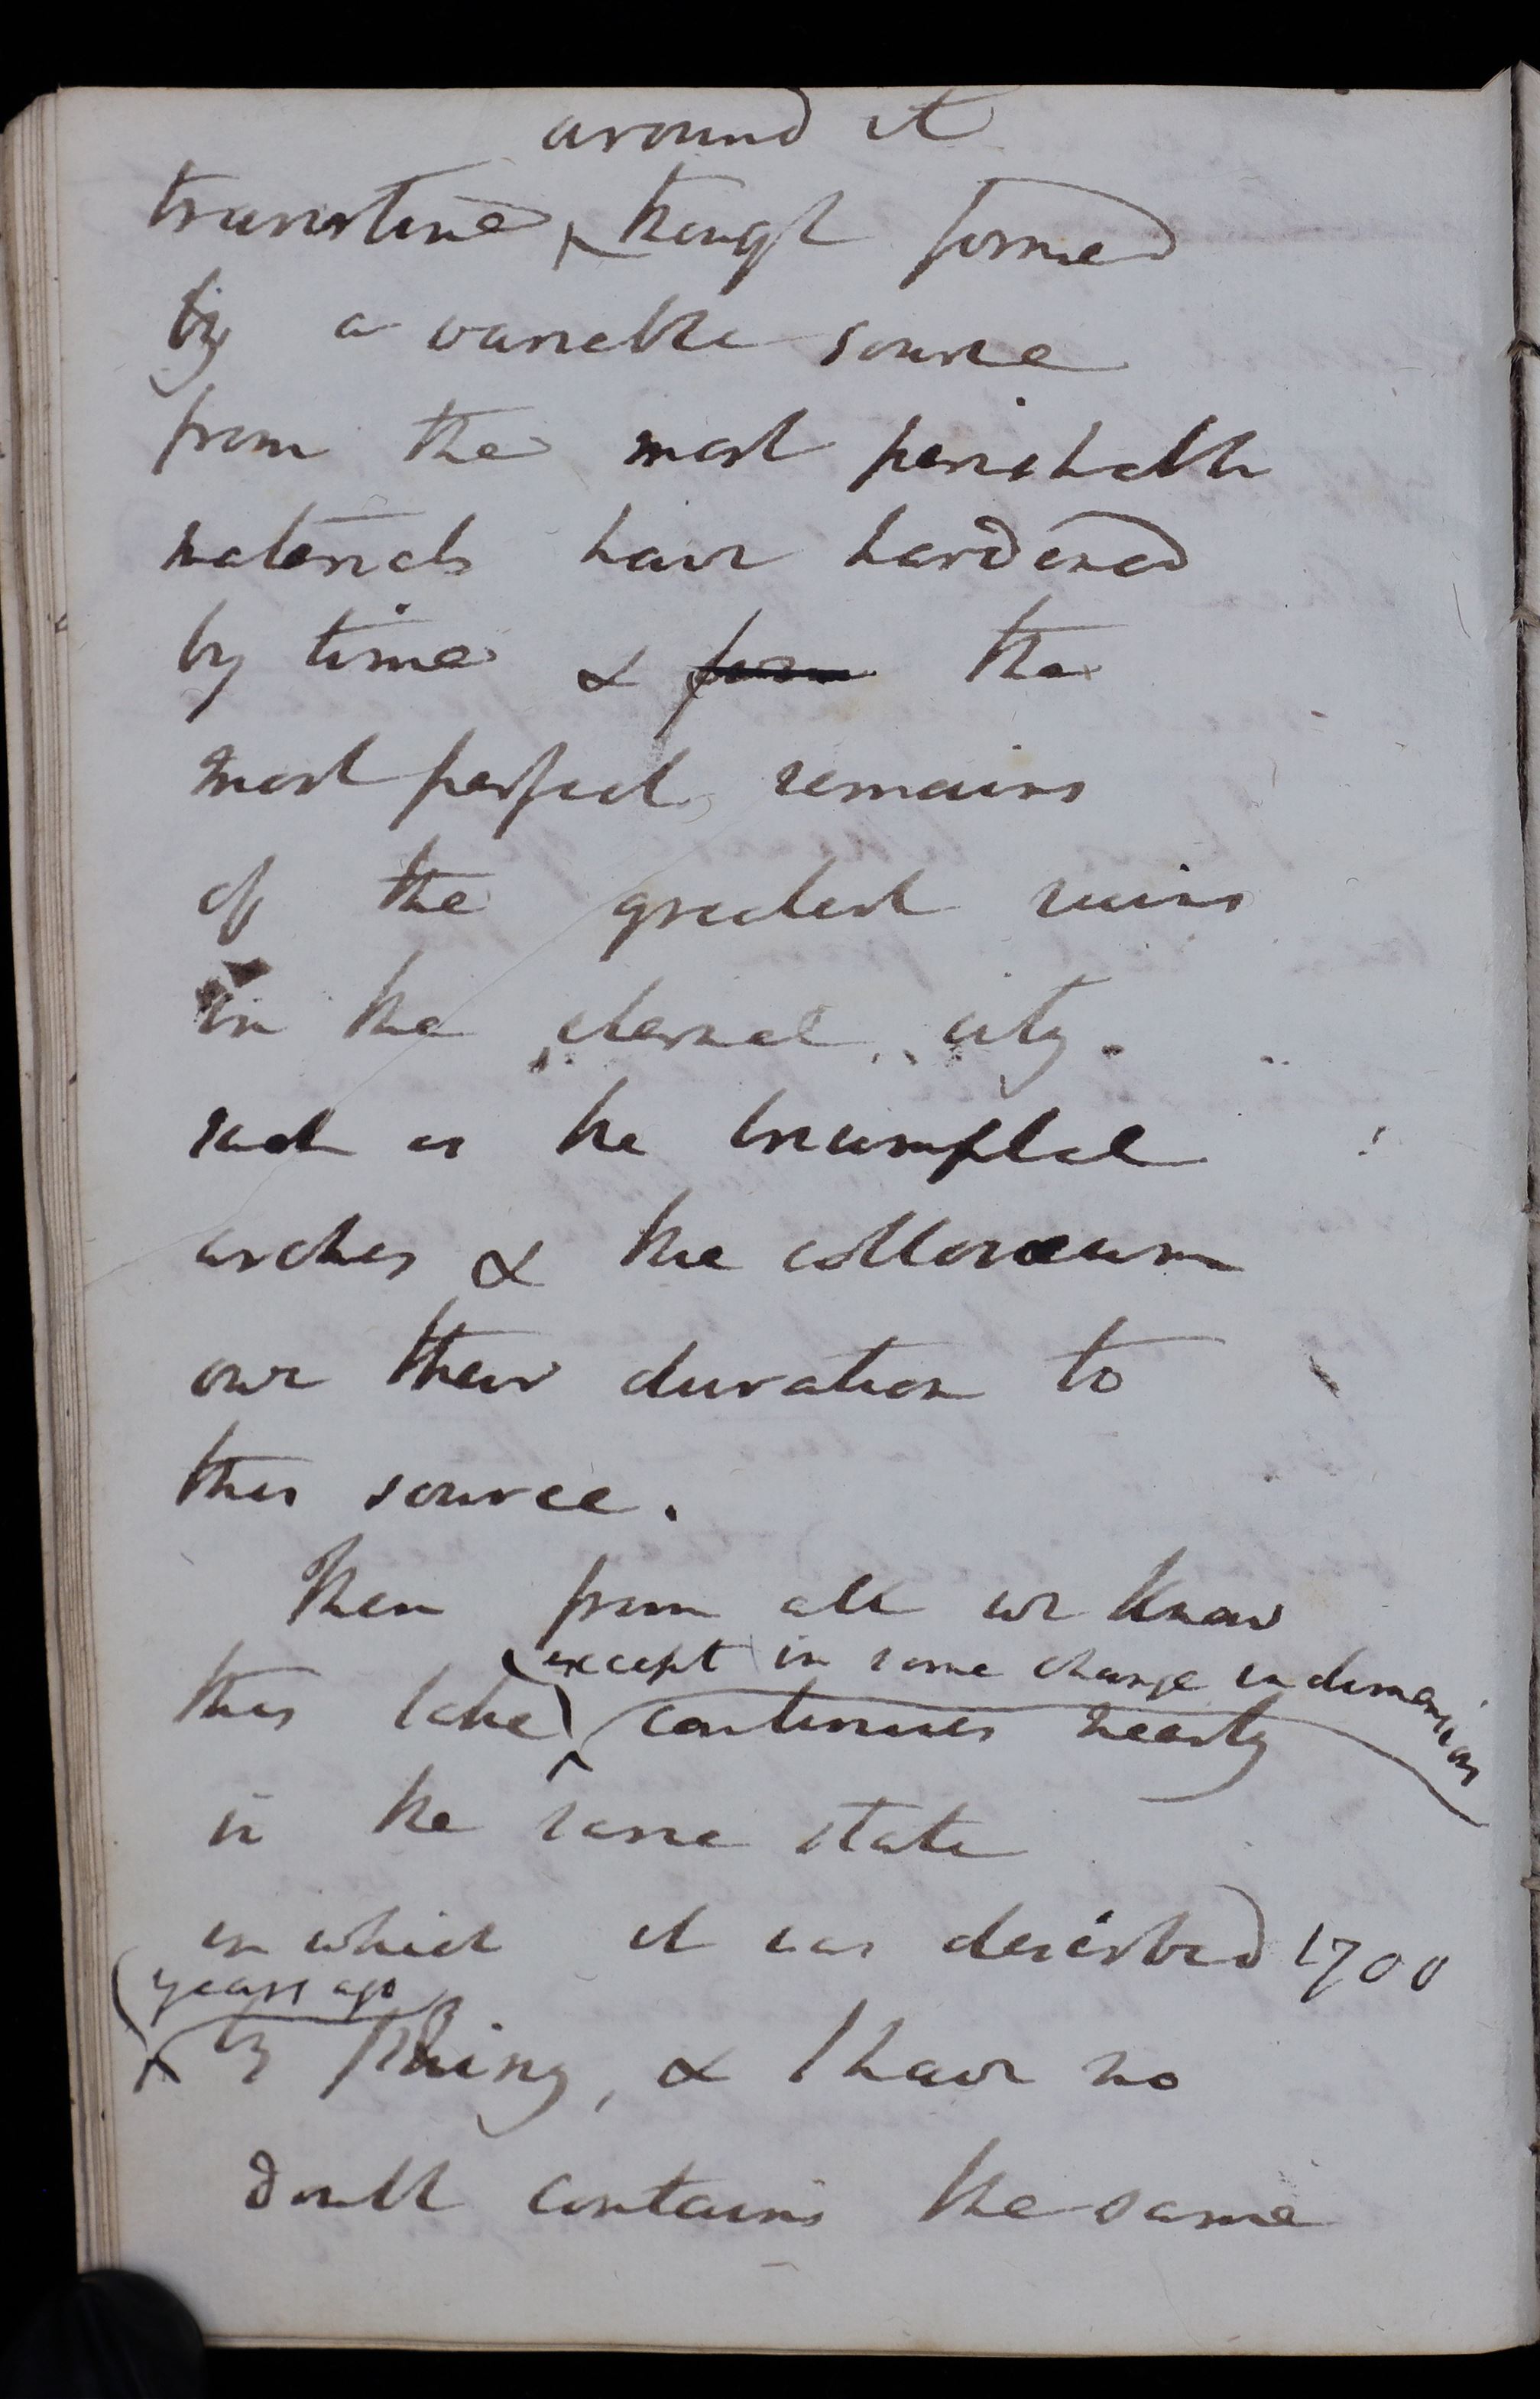 around it
travertine though formed
by a variable source
from the most perishable
materials have hardened
by time & form the
most perfect remains
of the greatest ruins
in the eternal city.
such as the triumphal
arches & the colloseum
owe their duration to
this source.
Then from all we know
except in some change in dimension
this lake continues nearly
in the same state
in which it was described 1700
years ago
by Pliny, & I have no
doubt contains the same